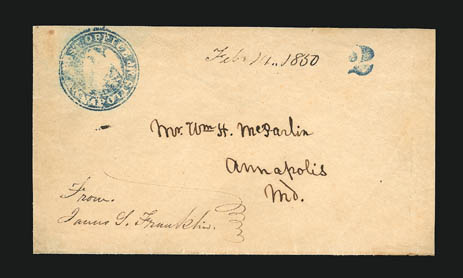 POST OFFICE
ANNAPOLIS
1850
2
Mr. Wm H. McParlin
Annapolis
Md.
From.
James S. Franklin.